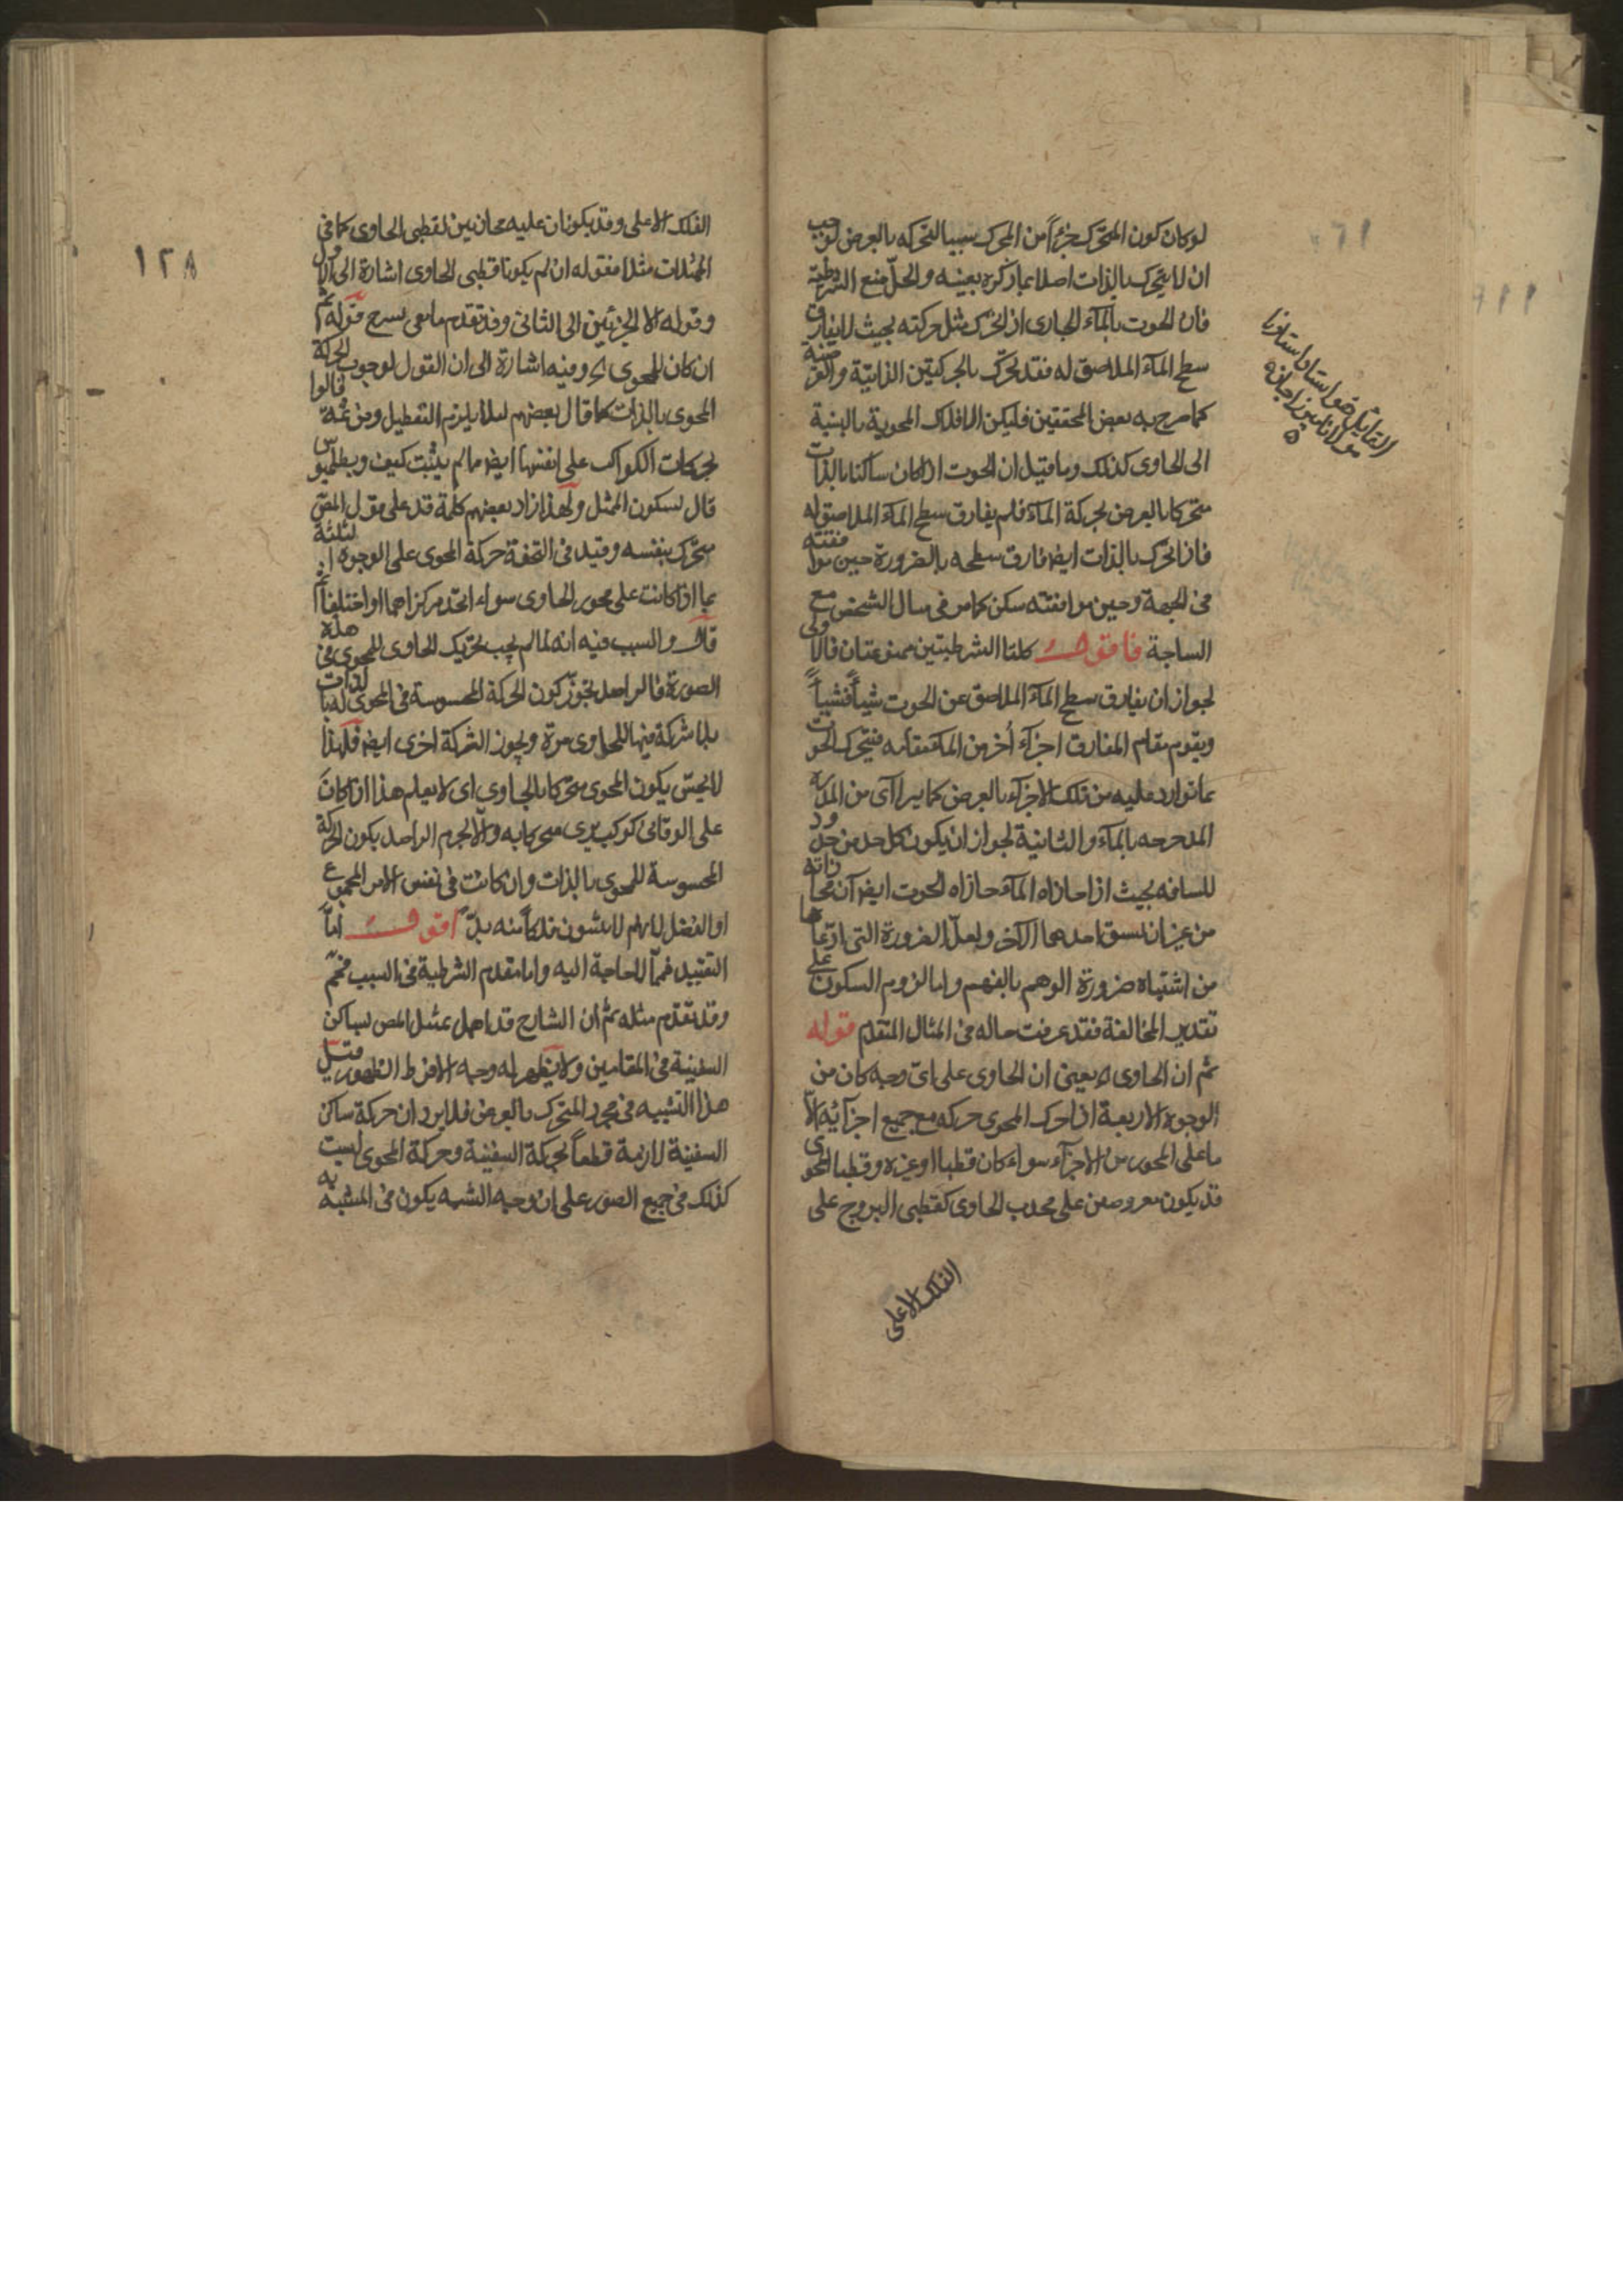 لو كان كون المتحرك جزءاً من المحرك سببا لتحركه بالعرض لوجب
ان لا يتحرك بالذات اصلا بما ذكره بعينه والحلّ منع الشرطية
فان الحوت بالمآء الجارى اذا تحرك مثل حركته بحيث لا يفارق
سطح المآء الملاصق له فقد تحرّك بالحركتين الذاتيّة والعرضية
كما صرح به بعض المحققين فليكن الافلاك المحوية بالنسبة
الى الحاوى كذلك وما قيل ان الحوت اذا كان ساكنا بالذات
متحركا بالعرض بحركة المآء فلم يفارق سطح المآء الملاصق له
فاذا تحرّك بالذات ايضا فارق سطحه بالضرورة حين موافقته
فى الجهة وحين موافقته سكن كما مر فى مثال الشخص مع
الساجة فاقول كلتا الشرطيتين ممنوعتان فالاولى
لجواز ان يفارق سطح المآء الملاصق عن الحوت شيأً فشيأً
ويقوم مقام المفارق اجزآء أخر من المآء مقامه فيتحرك الحوت
بما توارد عليه من تلك الاجزآء بالعرض كما يرا آى من
المدحرجه بالمآء والثانية لجواز ان يكون كل حد من حدود
للمسافه بحيث اذا حاذاه المآء حاذاه الحوت ايضا آن محاذاته
من غير ان يسبق احدهما الآخر ولعلّ الضرورة التى ادّعاها
من اشتباه ضرورة الوهم بالفهم واما لزوم السكون على
تقدير المخالفة فقد عرفت حاله فى المثال المتقدم قوله
ثم ان الحاوى اه يعنى ان الحاوى على اىّ وجه كان من
الوجوه الاربعة اذا حرك المحوى حركه مع جميع اجزآئه الّا
ما على المحور من الاجزآء سواء كان قطبا او غيره وقطبا المحوى
قد يكون مفروضين على محدب الحاوى كقطبى البروج على
الفلك الاعلى
القايل استاد استادنا
مولانا ميرزا جان
الفلك الاعلى وقد يكونان عليه محاذيين لقطبى الحاوى كما فى
الممثلات مثلا فقوله ان لم يكونا قطبى الحاوى اشارة الى الاول
وقوله الا الجزئين الى الثانى وقد تقدم ما معى شرح قوله ثم
ان كان للمحوى اه وفيه اشارة الى ان القول لوجوب الحركة
المحوى بالذات كما قال بعضهم لئلا يلزم التعطيل ومن ثمّة قالوا
بحركات الكواكب على انفسها ايضا مما لم يثبت كيف وبطلميوس
قال لسكون الممثل ولهذا زاد بعضهم كلمة قد على قول المص
متحرك بنفسه وقيد فى التحفة حركة المحوى على الوجوه الثلثة
بما اذا كانت على محور الحاوى سواء اتحد مركزاهما او اختلفا ثم
قال والسبب فيه انه لما لم يجب تحريك الحاوى للمحوى فى هذه
الصورة فالراصد يجوّز كون الحركة المحسوسة فى المحوى له بالذات
بلا شركة فيها للحاوى مرة ويجوز الشركة اخرى ايضا فلهذا
لا يحسّ بكون المحوى متحركا بالحاوى اى لا يعلم هذا اذا كان
على الوقانى كوكب يرى متحركا به والّا لجزم الراصد بكون الحركة
المحسوسة للمحوى بالذات وان كانت فى نفس الامر المجموع
او الفضل لانهم لا يثبتون فلكا منه بدّ اقول امّا
التقييد فمما لا حاجة اليه واما مقدم الشرطية فى السبب فممّ
وقد تقدم مثله ثم ان الشارح قد اهمل تمثيل المص بساكن
السفينة فى المقامين ولا يظهر له وجه الا فرط الظهور قيل
هذا التشبيه فى مجرد المتحرك بالعرض فلا يرد ان حركة ساكن
السفينة لازمة قطعاً بحركة السفينة وحركة المحوى ليست
كذلك فى جميع الصور على ان وجه الشبه يكون فى المشبه به
١٢٨